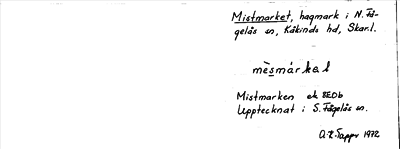 Mistmarket, hagmark i N. Få-
gelås sn, Kåkinds hd, Skar.l.
mèsmárkət
Mistmarken ek 8EDb
Upptecknat i S. Fågelås sn.
1972